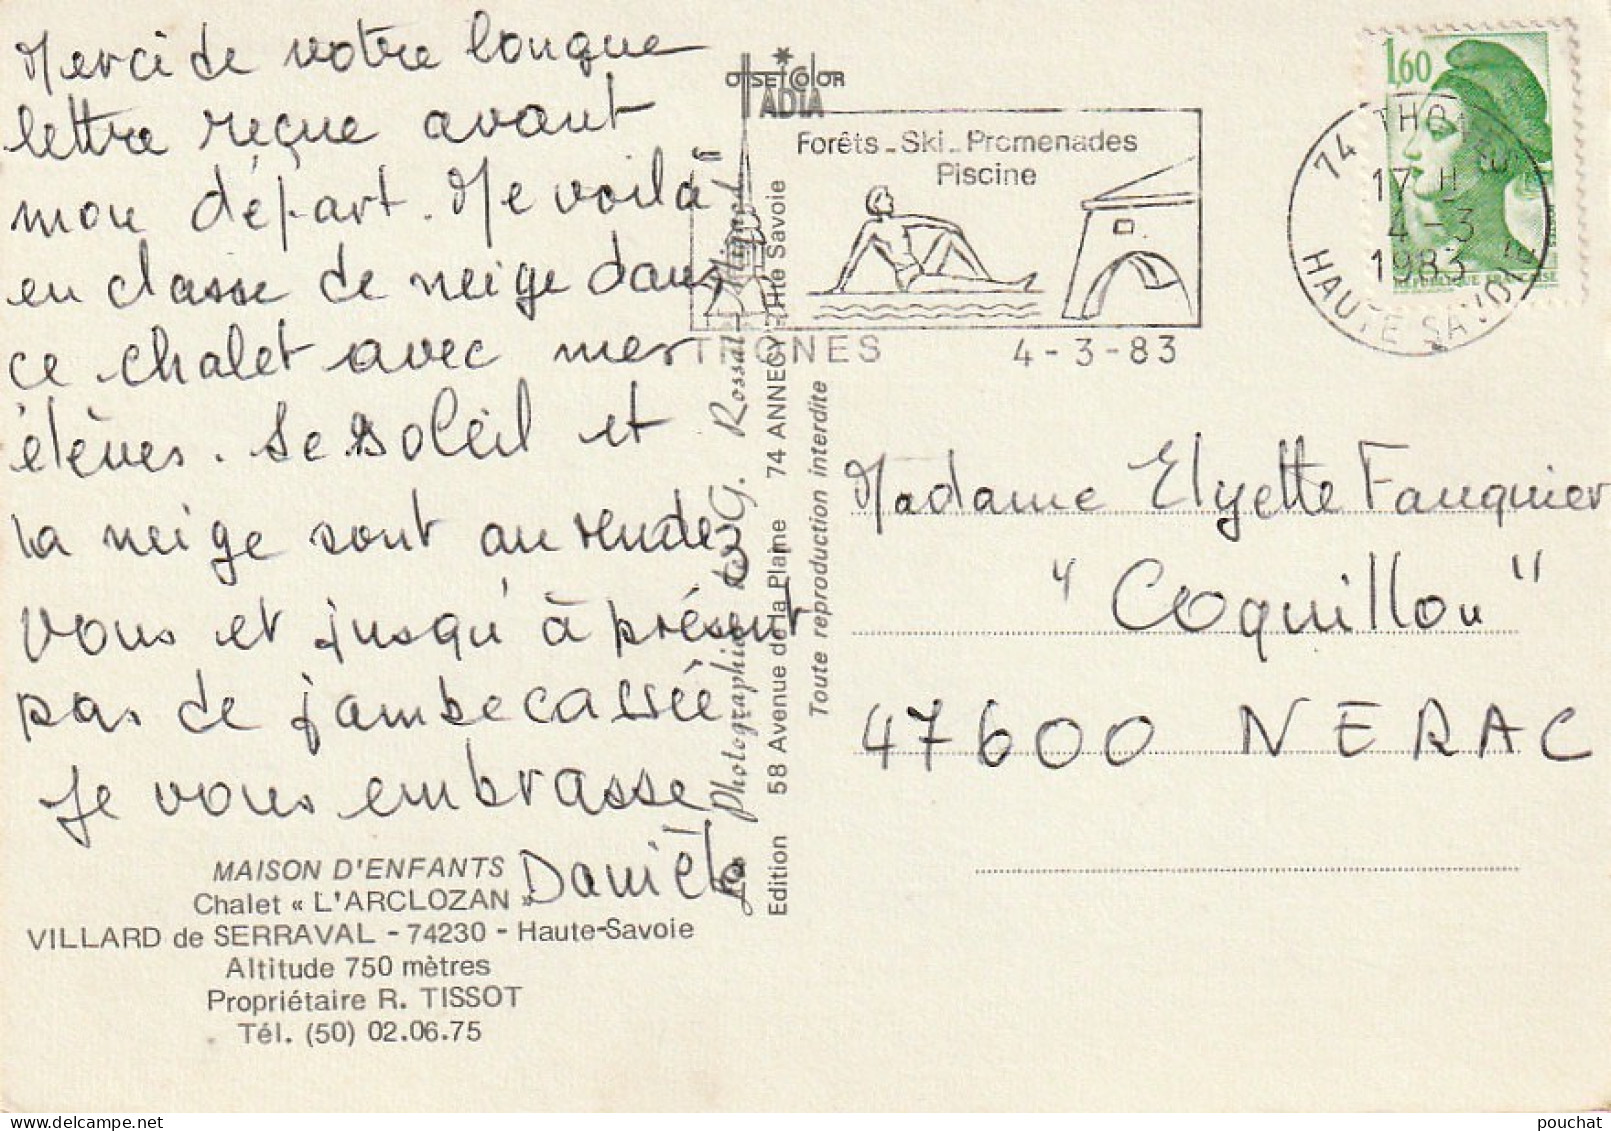 Merci de votre longue
lettre reçue avant
mon départ. Me voilà
en classe de neige dans
ce chalet avec mes
élèves. Le soleil et
la neige sont au rendez
vous et jusqu'à présent
pas de jambe cassée
Je vous embrasse
Danièle
MAISON D'ENFANTS
Chalet « L'ARCLOZAN »
VILLARD de SERRAVAL - 74230 - Haute-Savoie
Altitude 750 mètres
Propriétaire R. TISSOT
Tél. (50) 02.06.75
OFFSET COLOR
IADIA
Photographie de G. Rossat-Mignot
Edition 58 Avenue de la Plaine 74 ANNECY Hte Savoie
Toute reproduction interdite
Forêts - Ski - Promenades
Piscine
THONES 4-3-83
1,60
RÉPUBLIQUE FRANÇAISE
74 THONES
17 H
4-3
1983
HAUTE SAVOIE
Madame Elyette Fauquier
"Coquillou"
47600 NERAC
pouchat